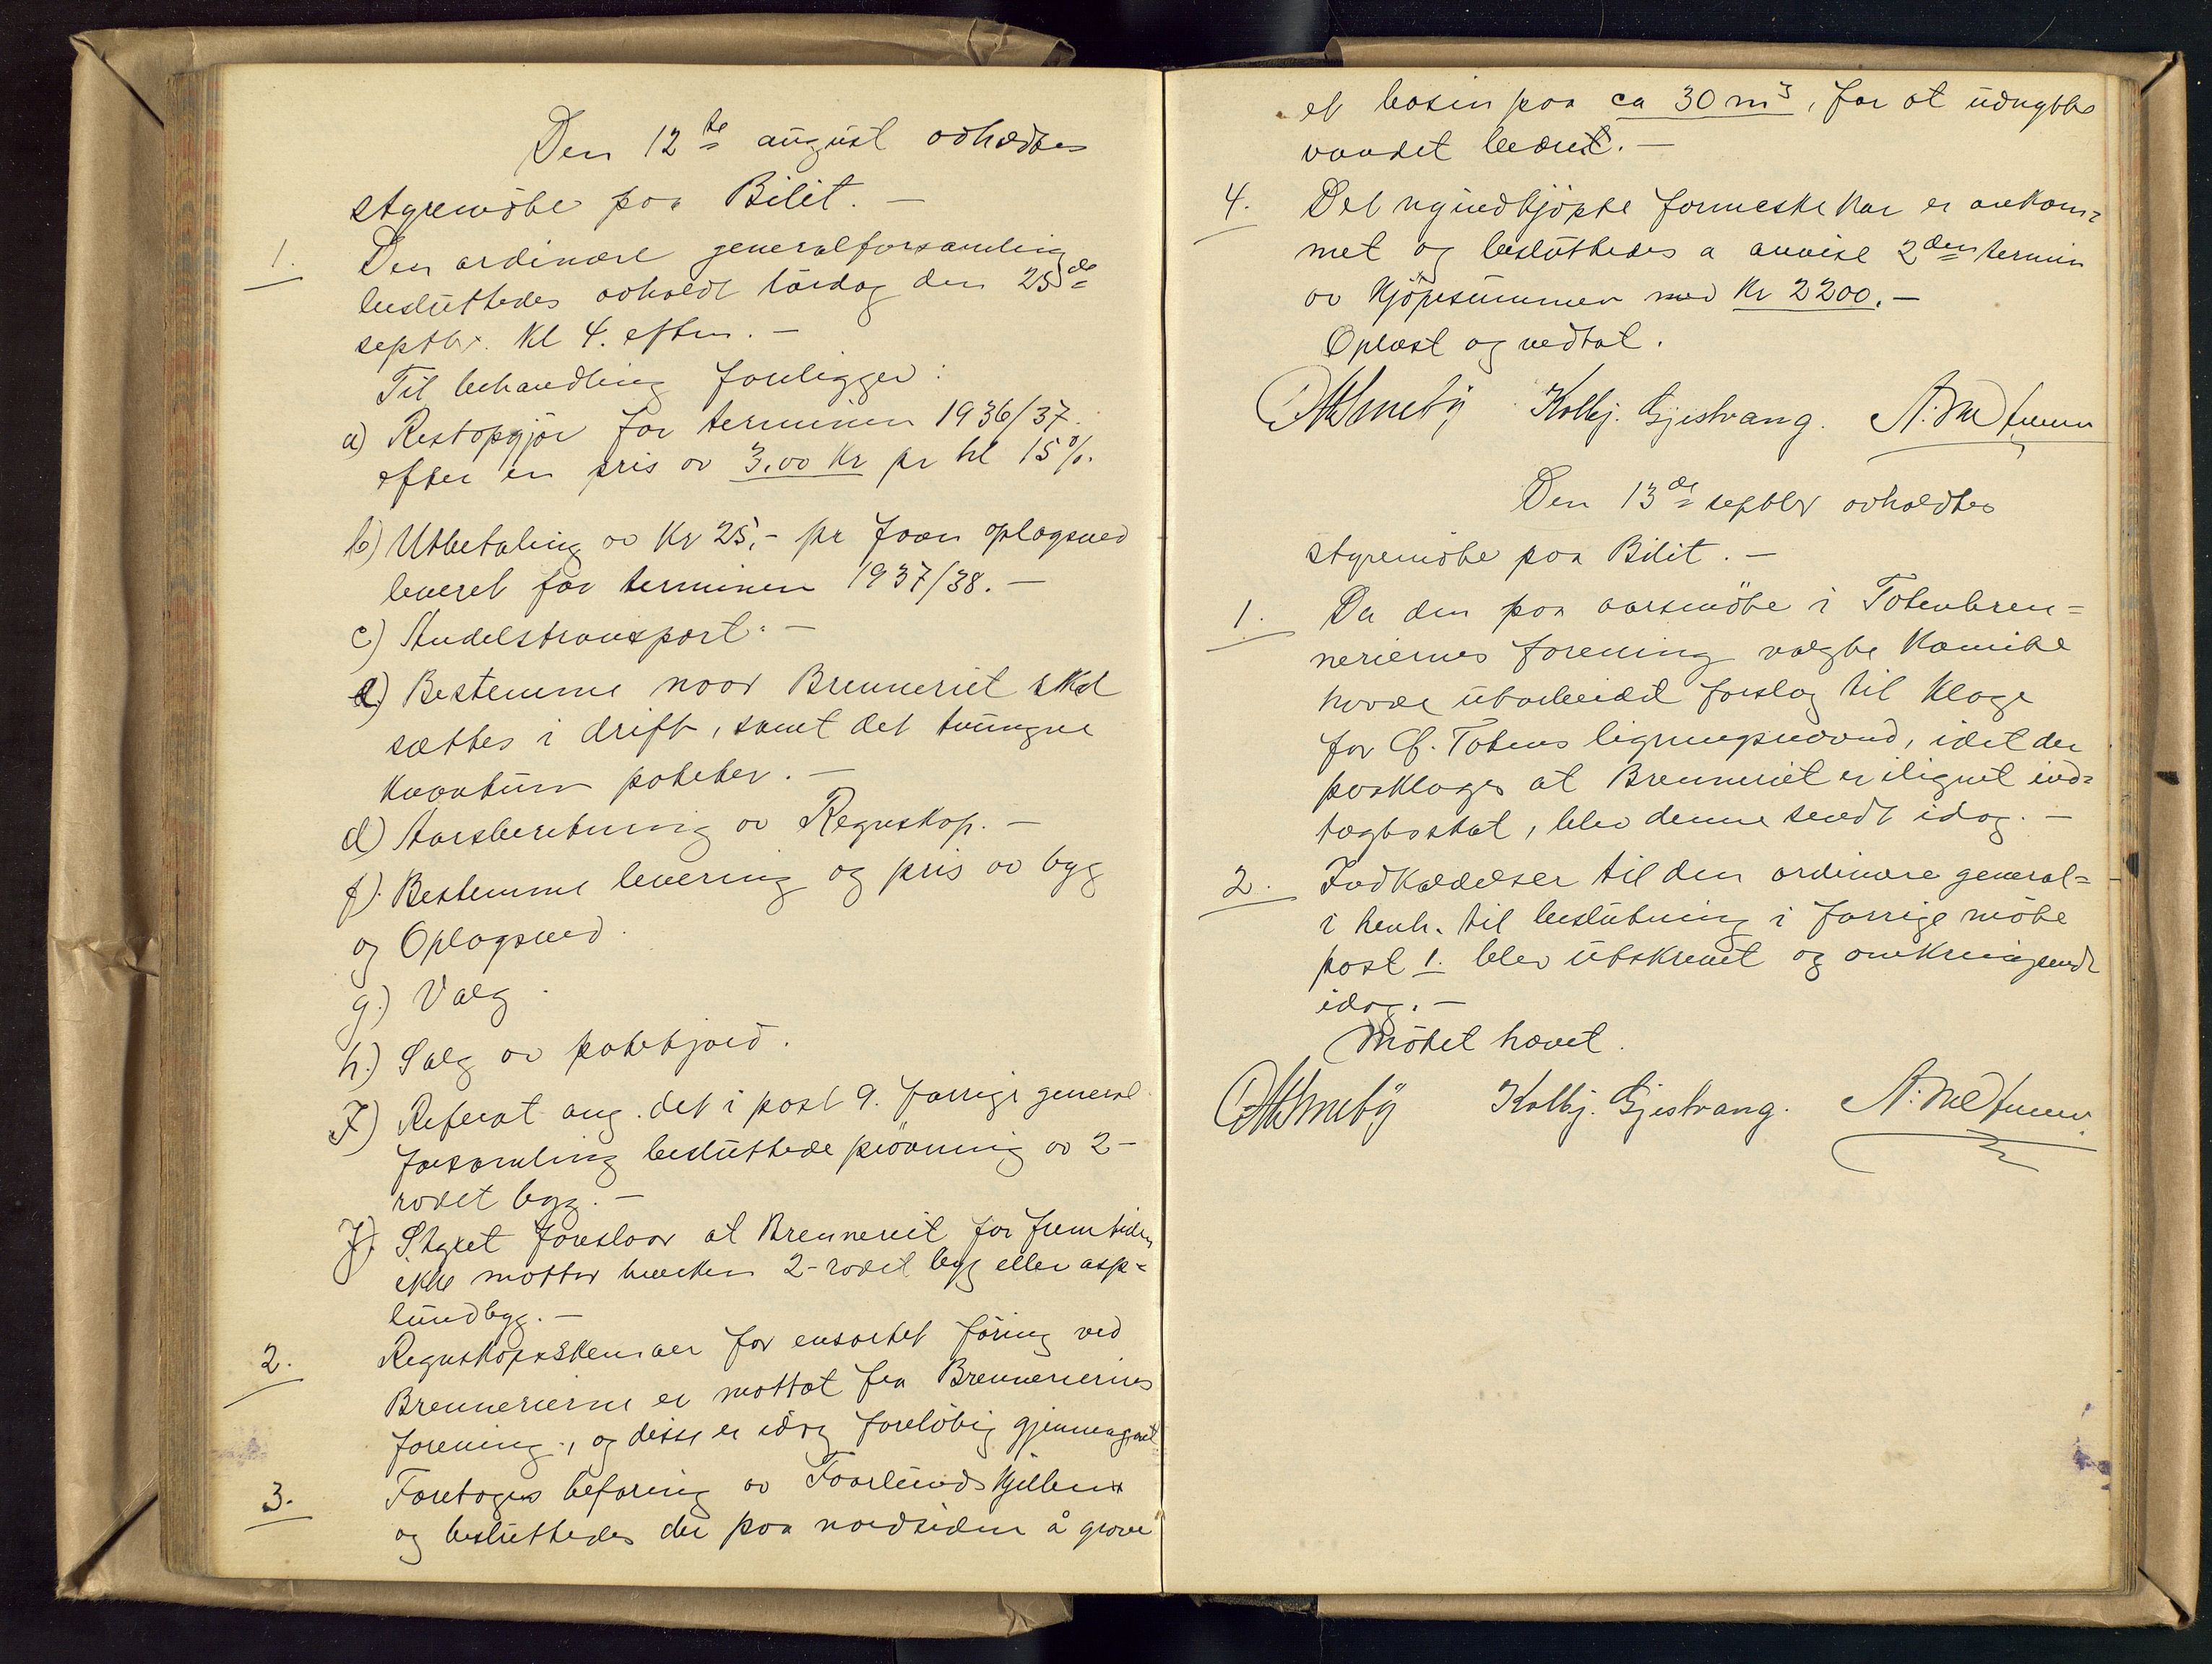 Den 12te august avholdtes
styremöte paa Bilit. —
1. Den ordinære generalforsamling
besluttedes avholdt lördag den 25de
septbr. Kl 4. efterm. —
Til behandling foreligger:
a) Restopgjör for terminen 1936/37.
efter en pris av 3,00 Kr pr hl 15%.
b) Utbetaling av Kr 25,- pr favn oplagsved
leveret for terminen 1937/38. —
c) Andelstransport. —
e) Bestemme naar Brenneriet skal
sættes i drift, samt det tvungne
kvantum poteter. —
d) Aarsberetning av Regnskap. —
f). Bestemme levering og pris av byg
og Oplagsved.
g.) Valg.
h.) Salg av potetjord.
I) Referat ang. det i post 9. forrige general
forsamling besluttede prövning av 2-
radet byg. —
J). Styret foreslaar at Brenneriet for fremtiden
ikke mottar hverken 2-radet byg eller asp=
lundbyg. —
2. Regnskapsskemaer for ensartet föring ved
Brennerierne er mottat fra Brenneriernes
forening, og disse er idag forelöbig gjennemgaat
3. Foretages befaring av Faarlundskjilden
og besluttedes der paa nordsiden å grave
et basin paa ca 30 m3, for at utnytte
vandet bedre. —
4. Det nyindkjöpte formeskekar er ankom=
met og besluttedes a anvise 2den termin
av kjöpesummen med Kr 2200. —
Oplæst og vedtat.
Smeby Kolbj. Gjestvang.
Den 13de septbr avholdtes
styremöte paa Bilit. —
1. Da den paa aarsmöte i Totenbren=
neriernes forening valgte Komite
havde utarbeidet forslag til Klage
for Ö. Totens ligningsnævnd, idet der
paaklages at Brenneriet er ilignet ind=
tægtsskat, blev denne sendt idag. —
2. Indkaldelser til den ordinære general=
i henh. til beslutning i forrige möte
post 1. blev utskrevet og omkringsendt
idag. —
Mötet hævet.
Smeby Kolbj. Gjestvang.